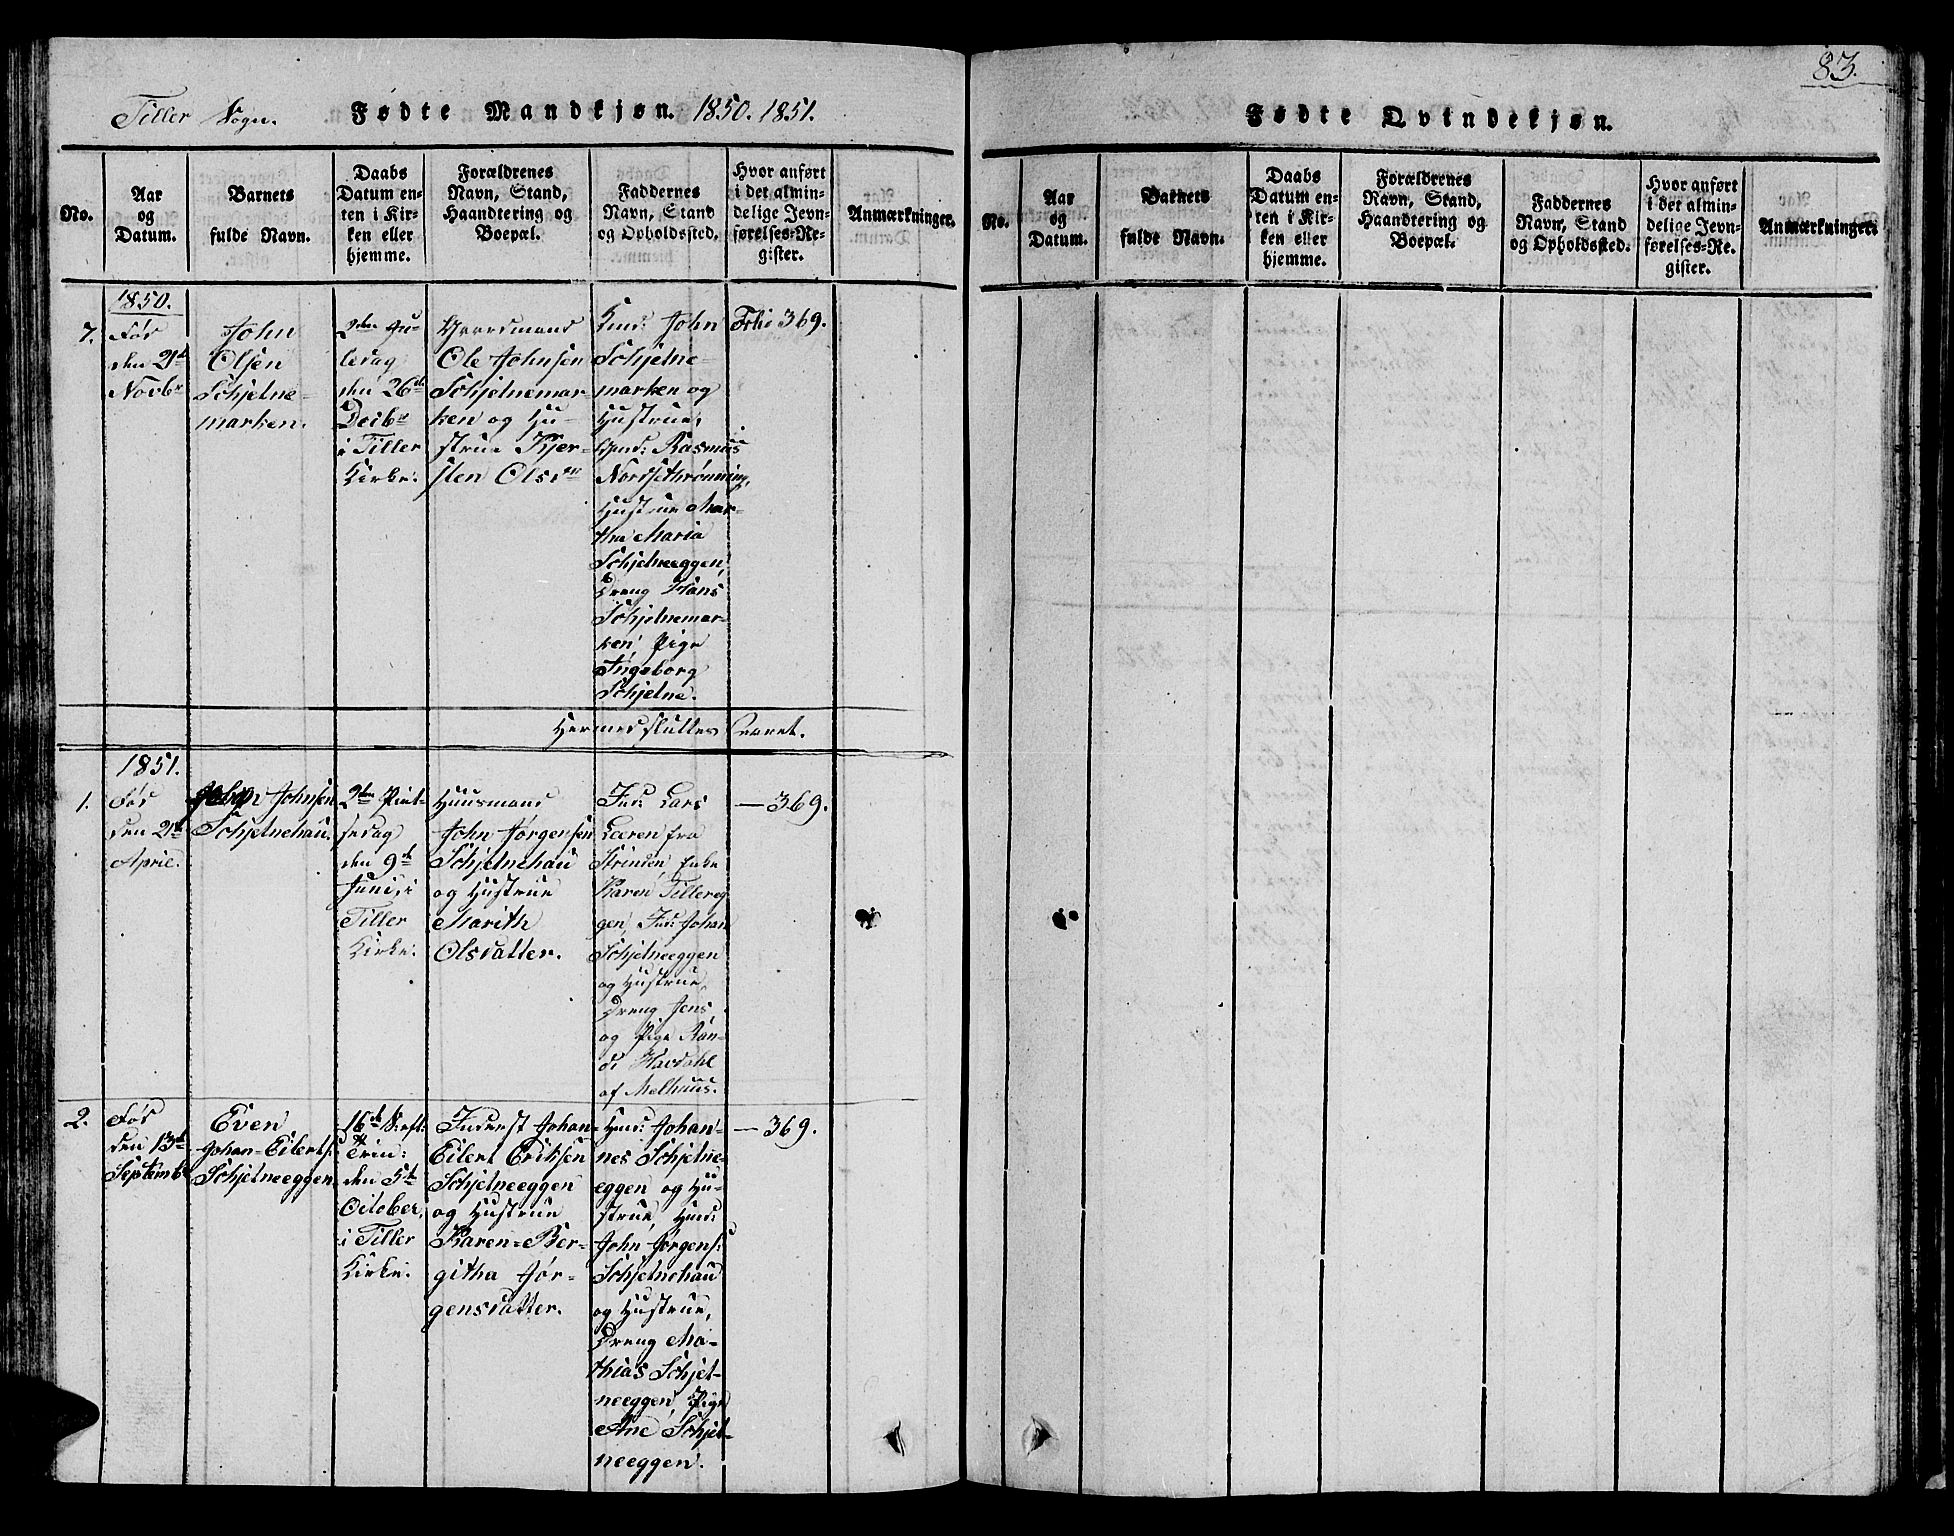 Tiller Sogn.
Fødte Mandkjøn. 1850. 1851.
No.
Aar
og
Datum.
Barnets
fulde Navn.
Daabs
Datum en-
ten i Kir-
ken eller
hjemme.
Forældrenes
Navn, Stand,
Haandtering og
Boepæl.
Faddernes
Navn, Stand
og Opholdssted.
Hvor anført
i det almin-
delige Jevn-
førelses-Re-
gister.
Anmærkninger.
1850.
7.
Fød
den 21de
Novbr
John
Olsen
Schjelne-
marken.
2den Ju-
ledag
den 26de
Decbr
i Tiller
Kirke.
Gaardmand
Ole Johnsen
Schjelnemar
ken og Hu-
strue Kjer-
sten Olsdr
Huusmd: John
Schjelne-
marken og
Hustrue,
Rasmus
Nordsethrønning,
Hustrue Mar-
tha Maria
Schjelneeggen,
Dreng Hans
Schjelnemar-
ken, Pige
Ingeborg
Schjelne.
Folio 369.
Hermed sluttes Aaret.
1851.
1.
Fød
den 21de
April.
Johnsen
Schjelnehau.
2den Pint-
sedag
den 9de
Juni, i
Tiller
Kirke.
Huusmand
John Jørgensen
Schjelnehau
og Hustrue
Marith
Olsdatter.
Ind: Lars
Leeren fra
Strinden, Enke
Karen Tillereg
gen, Ind: Johan
Schjelneeggen
og Hustrue,
Dreng Jens,
og Pige Ran-
di Havdahl
af Melhuus.
— 369.
2.
Fød
den 13de
Septembr
Even
Johan-Eilerts:
Schjelneeggen
16de S: eft:
Trin:
den 5te
October,
i Tiller
Kirke.
Inderst Johan
Eilert Eriksen
Schjelneeggen
og Hustrue
Karen-Ber-
githa Jør-
gensdatter.
Huusmd: Johan-
nes Schjelne-
eggen og Hu-
strue, Huusmd:
John Jørgens:
Schjelnehau
og Hustrue,
Dreng Ma-
thias Schjel-
neeggen, Pige
Ane Schjel-
neeggen.
— 369.
83.
Fødte Qvindekjøn.
No.
Aar
og
Datum.
Barnets
fulde Navn.
Daabs
Datum en-
ten i Kir-
ken eller
hjemme.
Forældrenes
Navn, Stand,
Haandtering og
Boepæl.
Faddernes
Navn, Stand
og Opholdssted.
Hvor anført
i det almin-
delige Jevn-
førelses-Re-
gister.
Anmærkninger.